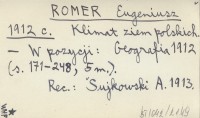 ROMER Eugeniusz
1912 c. Klimat ziem polskich.
— W pozycji: Geografia 1912
(s. 171-248, 5 m.).
Rec.: Sujkowski A. 1913.